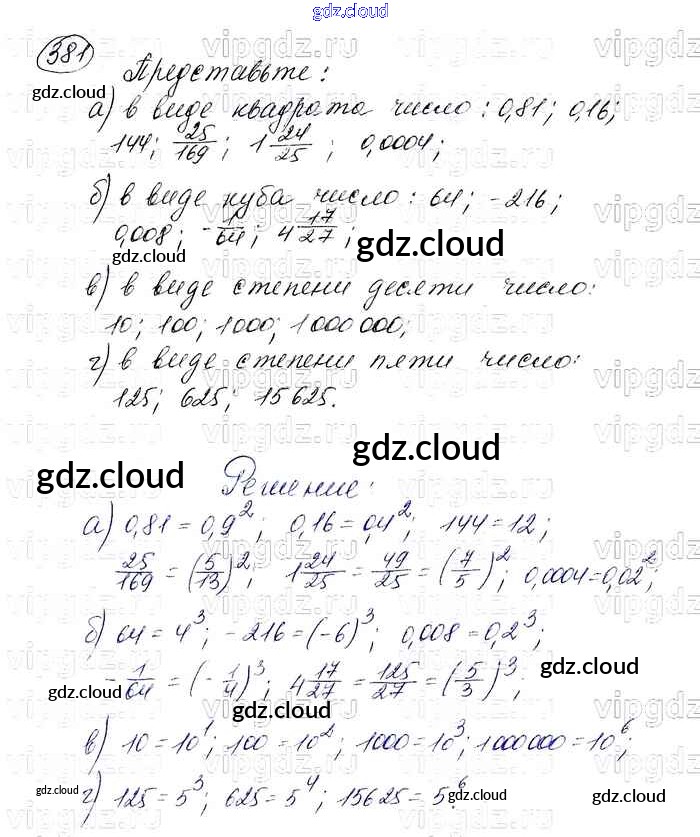 gdz.cloud
381
Представьте:
gdz.cloud
а) в виде квадрата число: 0,81; 0,16;
144; 25/169; 1 24/25; 0,0004;
б) в виде куба число: 64; -216;
0,008; -1/64; 4 17/27;
gdz.cloud
gdz.cloud
в) в виде степени десяти число:
10; 100; 1000; 1000000;
г) в виде степени пяти число:
125; 625; 15625.
gdz.cloud
gdz.cloud
Решение:
а) 0,81 = 0,9²; 0,16 = 0,4²; 144 = 12;
25/169 = (5/13)²; 1 24/25 = 49/25 = (7/5)²; 0,0004 = 0,02²;
б) 64 = 4³; -216 = (-6)³; 0,008 = 0,2³;
-1/64 = (-1/4)³; 4 17/27 = 125/27 = (5/3)³;
gdz.cloud
gdz.cloud
gdz.cloud
в) 10 = 10¹; 100 = 10²; 1000 = 10³; 1000000 = 10⁶;
г) 125 = 5³; 625 = 5⁴; 15625 = 5⁶.
gdz.cloud
gdz.cloud
gdz.cloud
vipgdz.ru